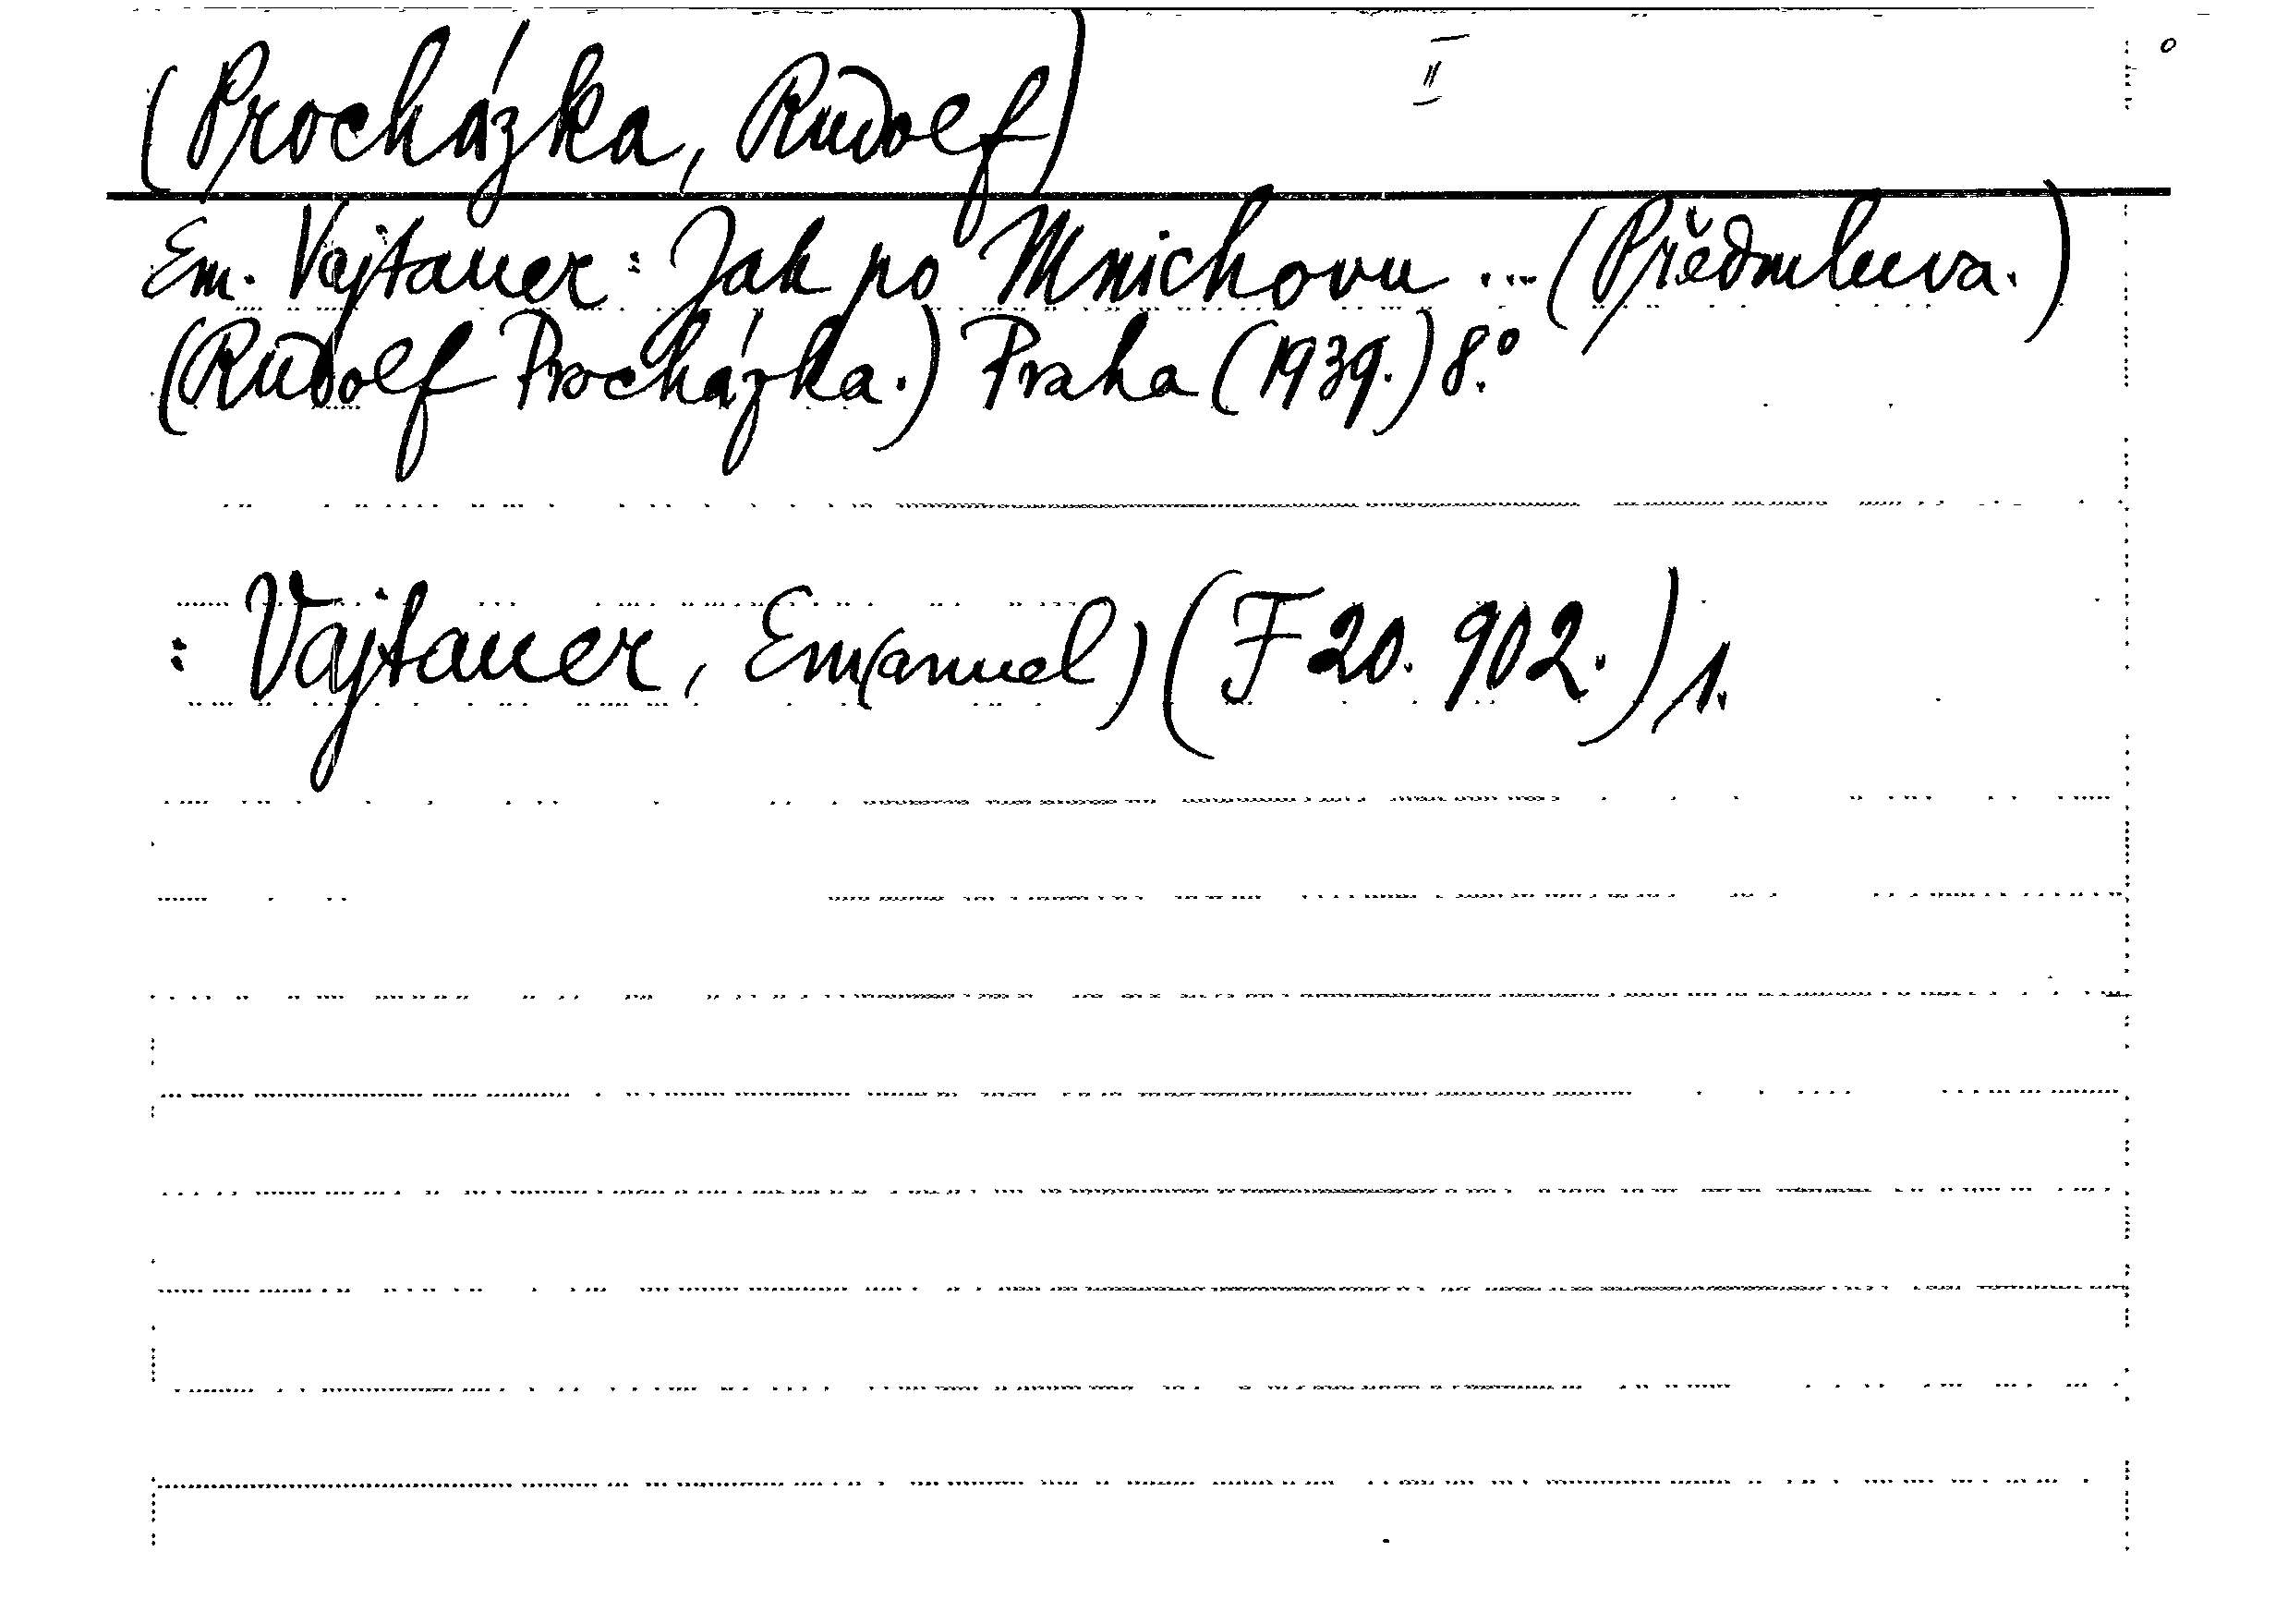 (Procházka, Rudolf) II
Em. Vajtauer: Jak po Mnichovu ... (Předmluva.)
(Rudolf Procházka.) Praha (1939.) 8.°
: Vajtauer, Em(anuel) (F 20.902.) 1.